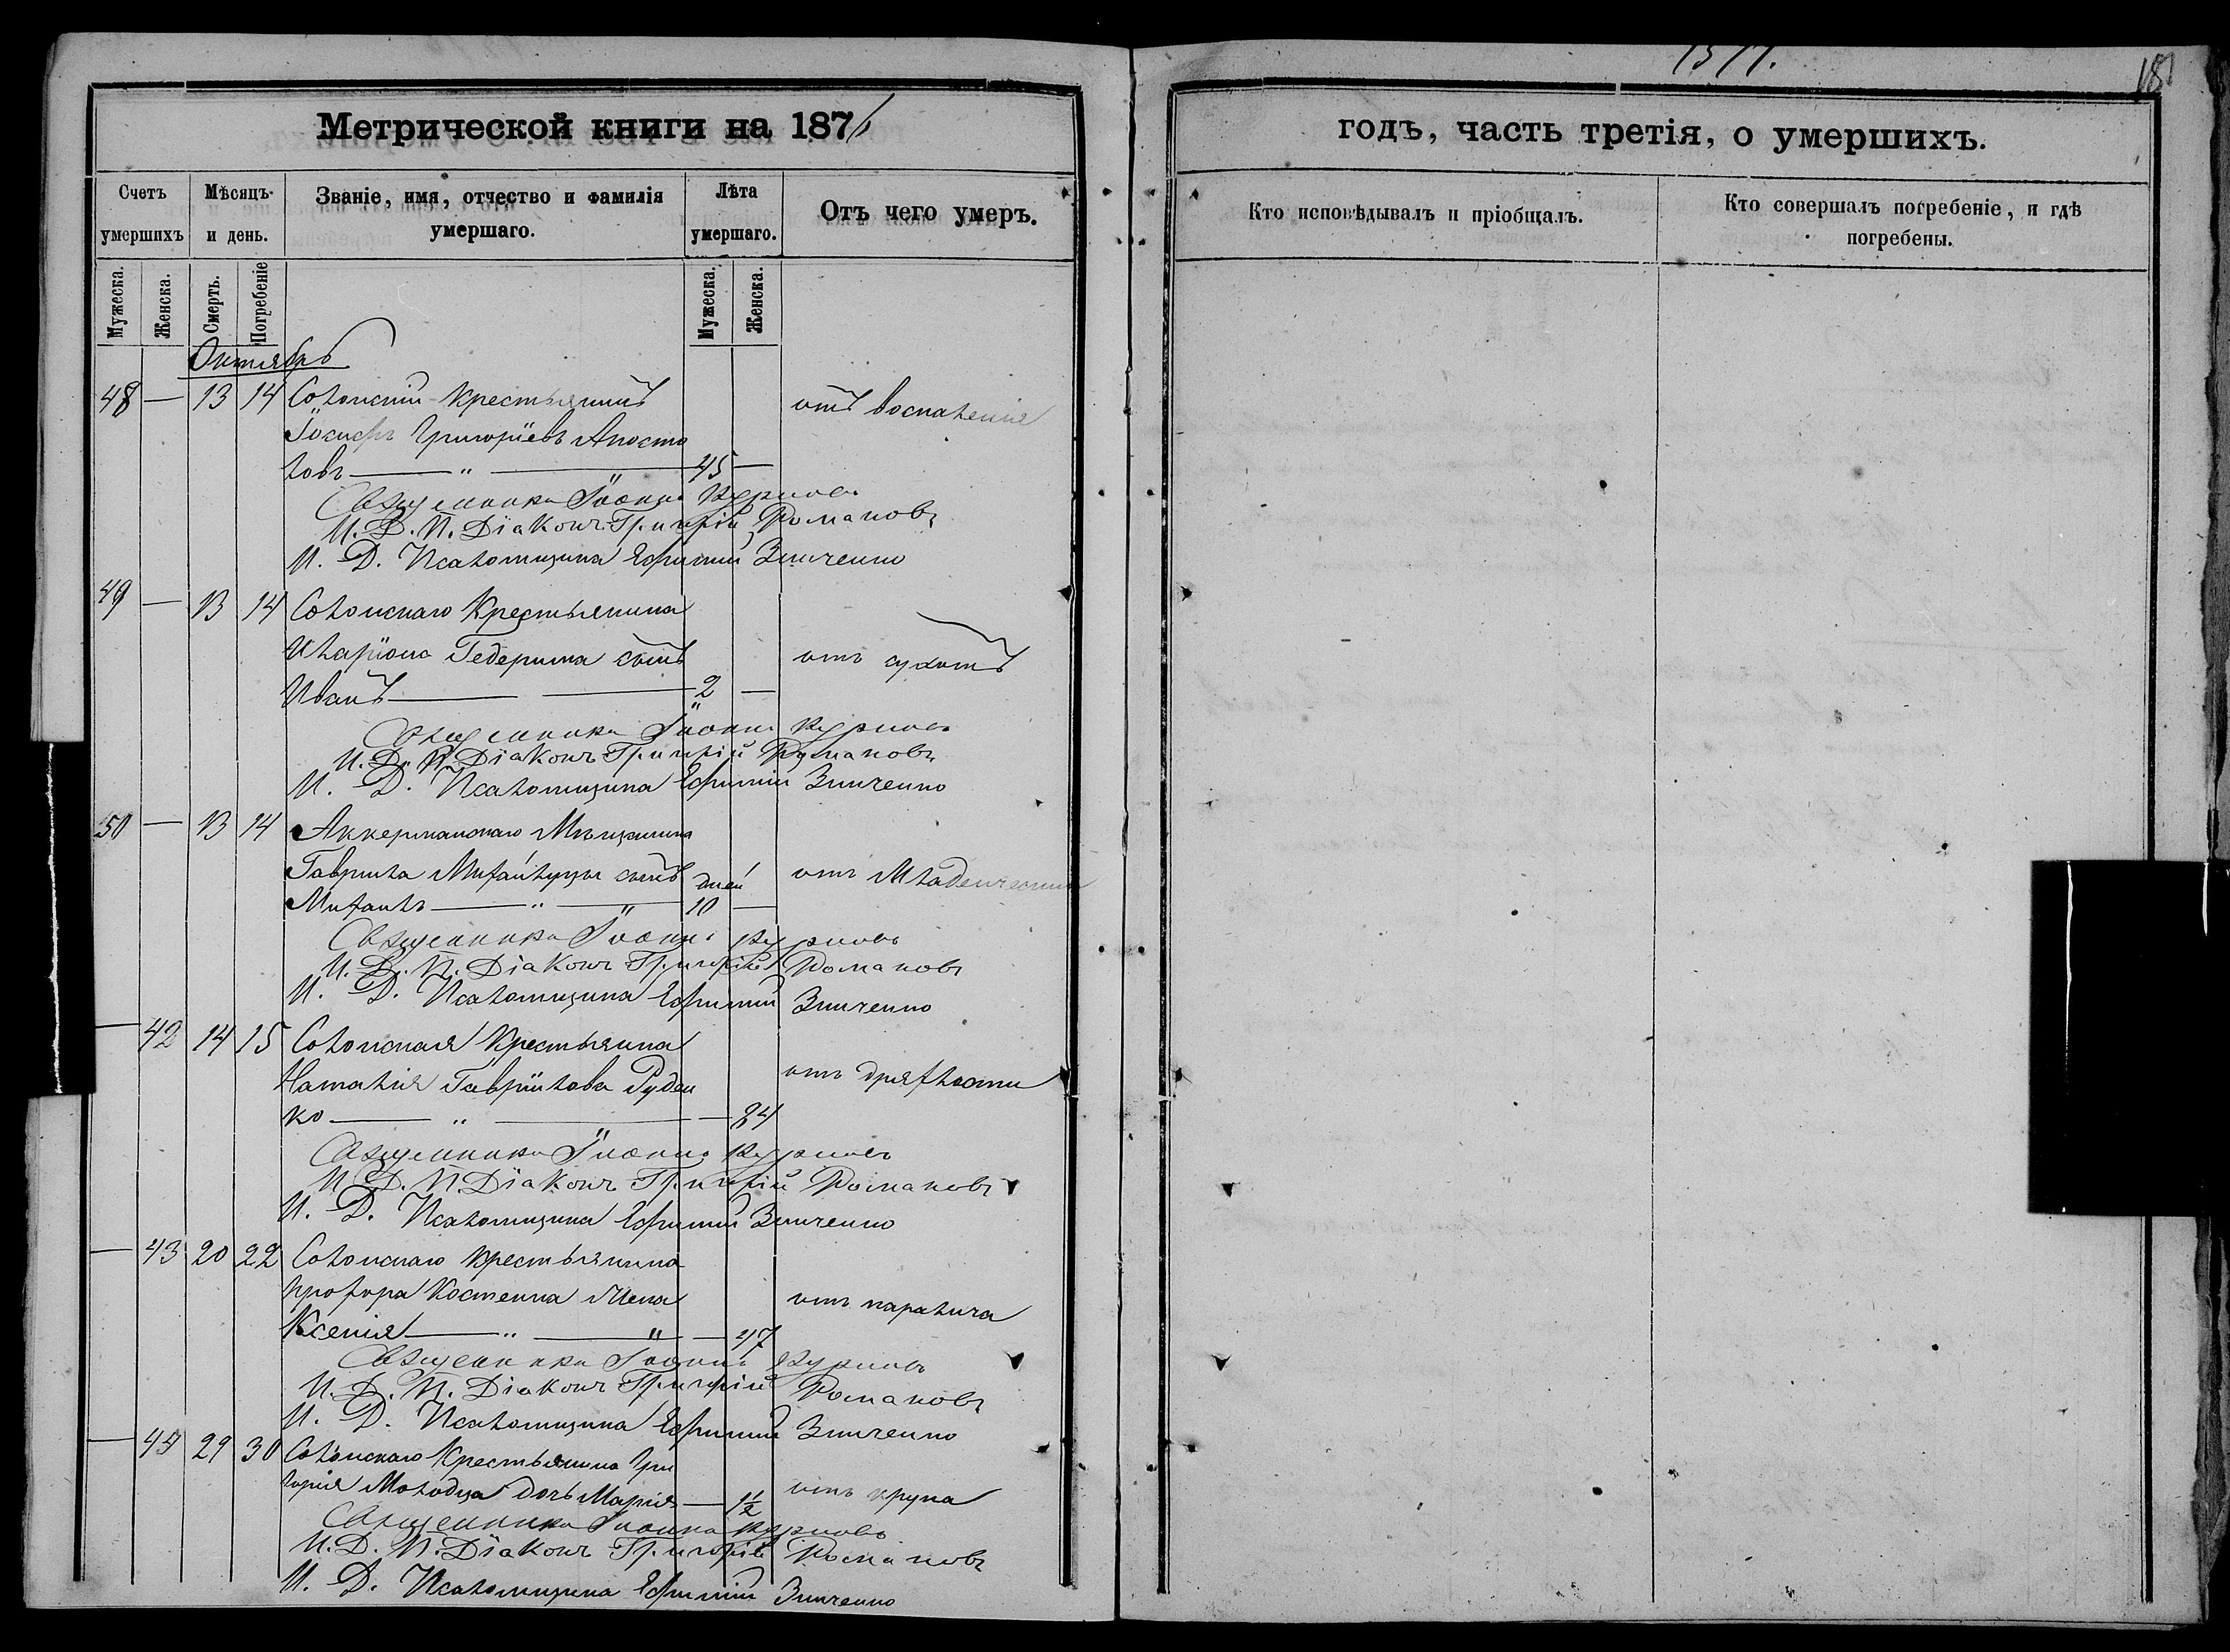 Метрической книги на 1876
Счетъ умершихъ
Мѣсяцъ и день.
Званіе, имя, отчество и фамилія умершаго.
Лѣта умершаго.
Отъ чего умеръ.
Мужеска.
Женска.
Смерть.
Погребеніе
Мужеска.
Женска.
Октябрь
48 — 13 14 Солонскій Крестьянинъ отъ воспаленія
Іосифъ Григоріевъ Апосто
ловъ — " — 45 —
Священникъ Іоаннъ
И. Д. П. Діаконъ Григорій Романовъ
И. Д. Псаломщика Ефимій Зинченко
49 — 13 14 Солонскаго Крестьянина
Иларіона сынъ отъ сухотъ
Иванъ — 2 —
Священникъ Іоаннъ
И. Д. П. Діаконъ Григорій Романовъ
И. Д. Псаломщика Ефимій Зинченко
50 — 13 14 Аккерманскаго Мѣщанина
Гаврила Михайлуцы сынъ дней отъ Младенческой
Михаилъ — " — " 10 —
Священникъ Іоаннъ
И. Д. П. Діаконъ Григорій Романовъ
И. Д. Псаломщика Ефимій Зинченко
— 42 14 15 Солонская Крестьянка
Наталія Гаврілова Руден отъ дряхлости
ко — " — — 84
Священникъ Іоаннъ
И. Д. П. Діаконъ Григорій Романовъ
И. Д. Псаломщика Ефимій Зинченко
— 43 20 22 Солонскаго Крестьянина
Прохора Костенка жена отъ паралича
Ксенія — " — " — 47
Священникъ Іоаннъ
И. Д. П. Діаконъ Григорій Романовъ
И. Д. Псаломщика Ефимій Зинченко
— 44 29 30 Солонскаго Крестьянина Гри
горія Молодца дочь Марія — 1½ отъ крупа
Священникъ Іоаннъ
И. Д. П. Діаконъ Григорій Романовъ
И. Д. Псаломщика Ефимій Зинченко
годъ, часть третія, о умершихъ.
Кто исповѣдывалъ и пріобщалъ.
Кто совершалъ погребеніе, и гдѣ погребены.